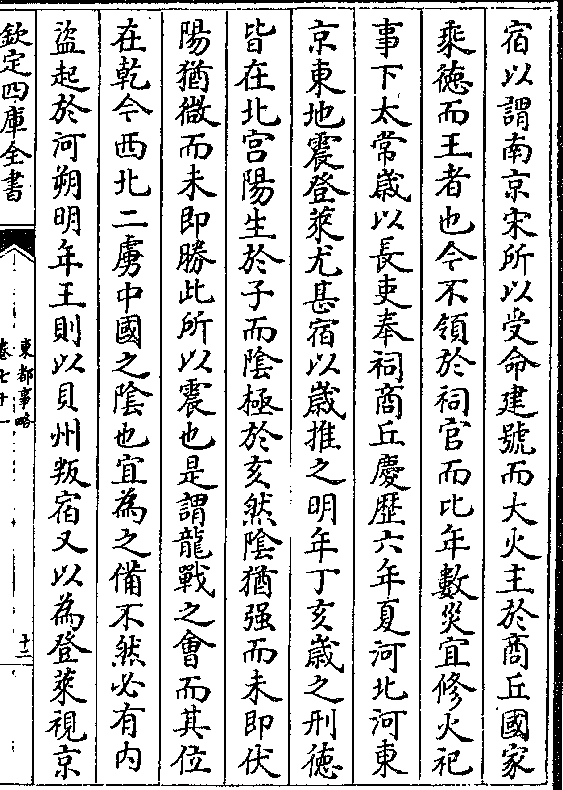 宿以謂南京宋所以受命建號而大火主於商丘國家
乘徳而王者也今不領於祠官而比年數災宜修火祀
事下太常歳以長吏奉祠商丘慶歴六年夏河北河東
京東地震登萊尤甚宿以歳推之明年丁亥歳之刑徳
皆在北宫陽生於子而陰極於亥然陰猶强而未即伏
陽猶微而未即勝此所以震也是謂龍戰之會而其位
在乾今西北二虜中國之陰也宜為之備不然必有内
盜起於河朔明年王則以貝州叛宿又以為登萊視京
欽定四庫全書
東都事略
卷七十一
十二